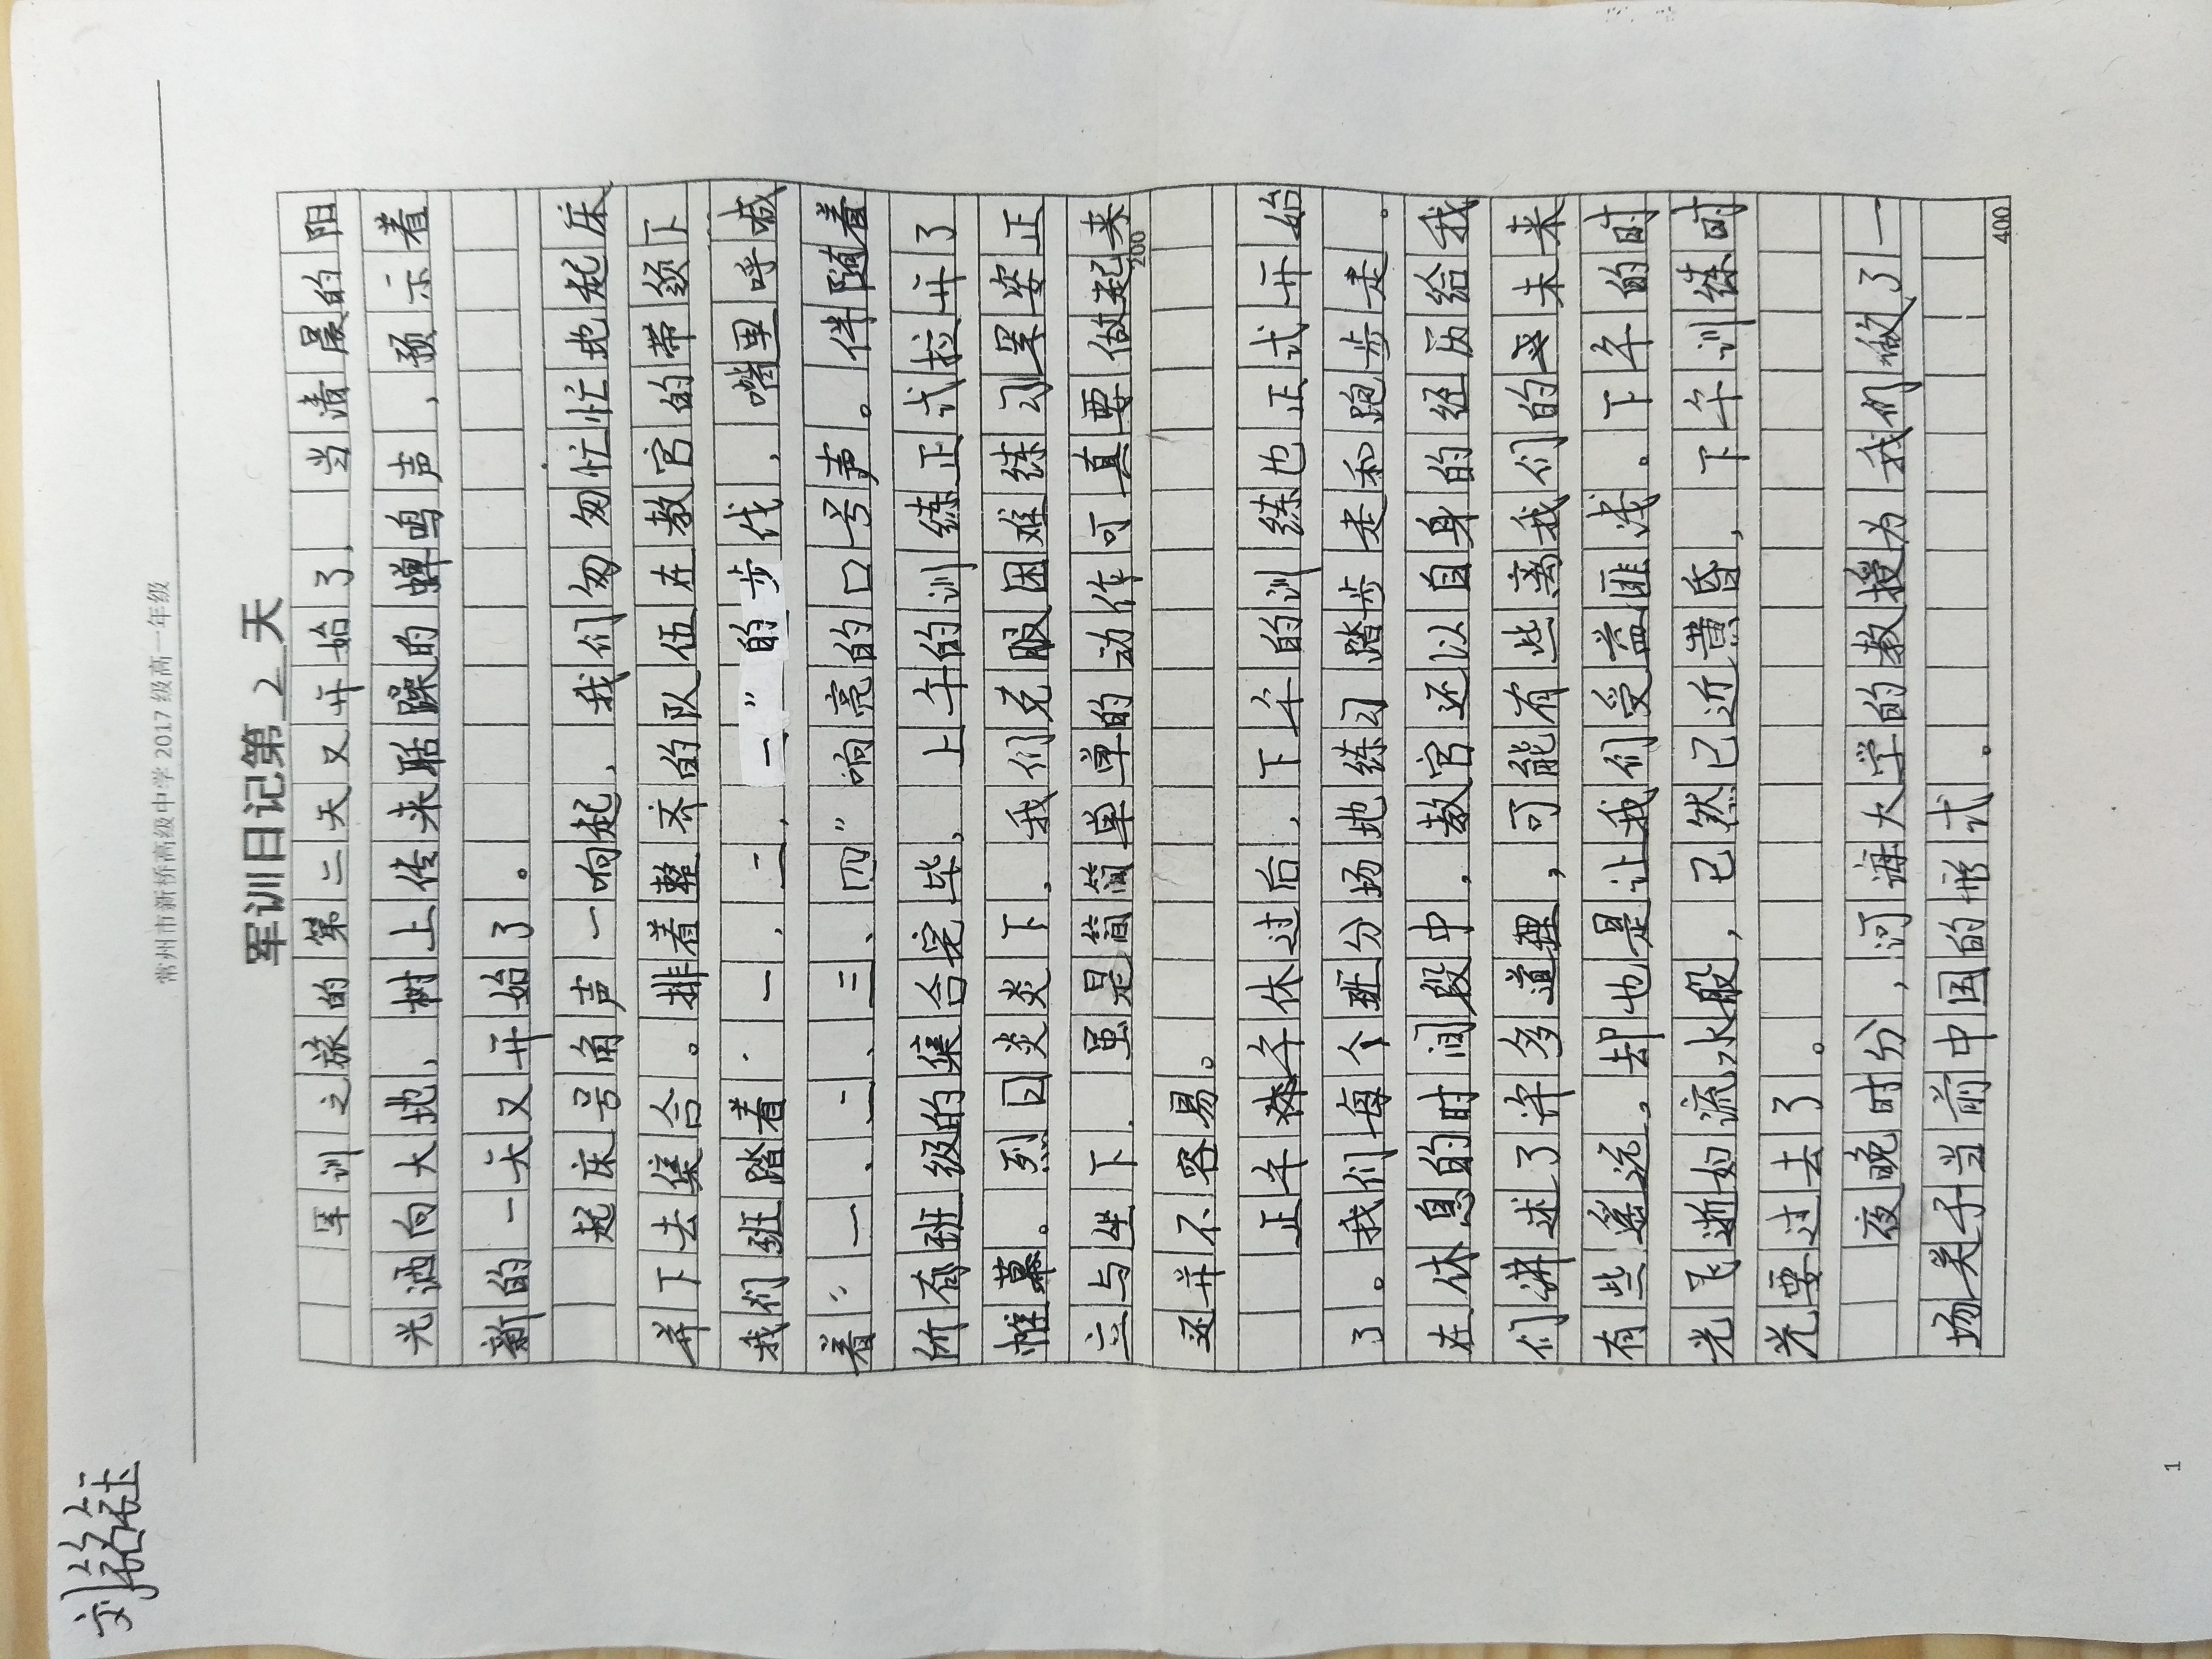 刘铭钰
常州市新桥高级中学2017级高一年级
军训日记第2天
军训之旅的第二天又开始了，当清晨的阳
光洒向大地，树上传来聒躁的蝉鸣声，预示着
新的一天又开始了。
起床号角声一响起，我们匆匆忙忙地起床
并下去集合。排着整齐的队伍在教官的带领下
我们班踏着“一，二，一”的步伐，嘴里呼喊
着“一、二、三、四”响亮的口号声。伴随着
所有班级的集合完毕，上午的训练正式拉开了
帷幕。烈日炎炎下，我们克服困难练习军姿正
立与坐下，虽是简简单单的动作可真要做起来200
还并不容易。
正午午休过后，下午的训练也正式开始
了。我们每个班分场地练习踏步走和跑步走。
在休息的时间段中，教官还以自身的经历给我
们讲述了许多道理，可能有些离我们的未来
有些遥远。却也是让我们受益匪浅。下午的时
光飞逝如流水般，已然已近黄昏，下午训练时
光要过去了。
夜晚时分，河海大学的教授为我们做了一
场关于当前中国的形式。
400
1